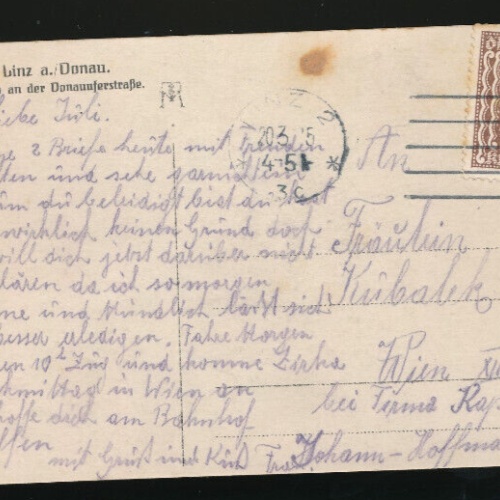 Linz a./Donau.
an der Donauuferstraße.
iebe Tüli.
2 Briefe heute mit Freuden
ten und sehe
um du beleidigt bist du hast
wirklich keinen Grund doch
will dich jetzt darüber nicht
klären da ich so morgen
ne und Mündlich läßt sich
besser erledigen. Fahre Morgen
en 10 Zug und komme Zirka
chmittag in Wien an
hoffe dich am Bahnhof
ffen
mit Gruß und Kuß Fra
LINZ 2
20.3. 5
3c
An
Fräulein
Kubalek
Wien XII
bei Firma Rap
Johann-Hoffma